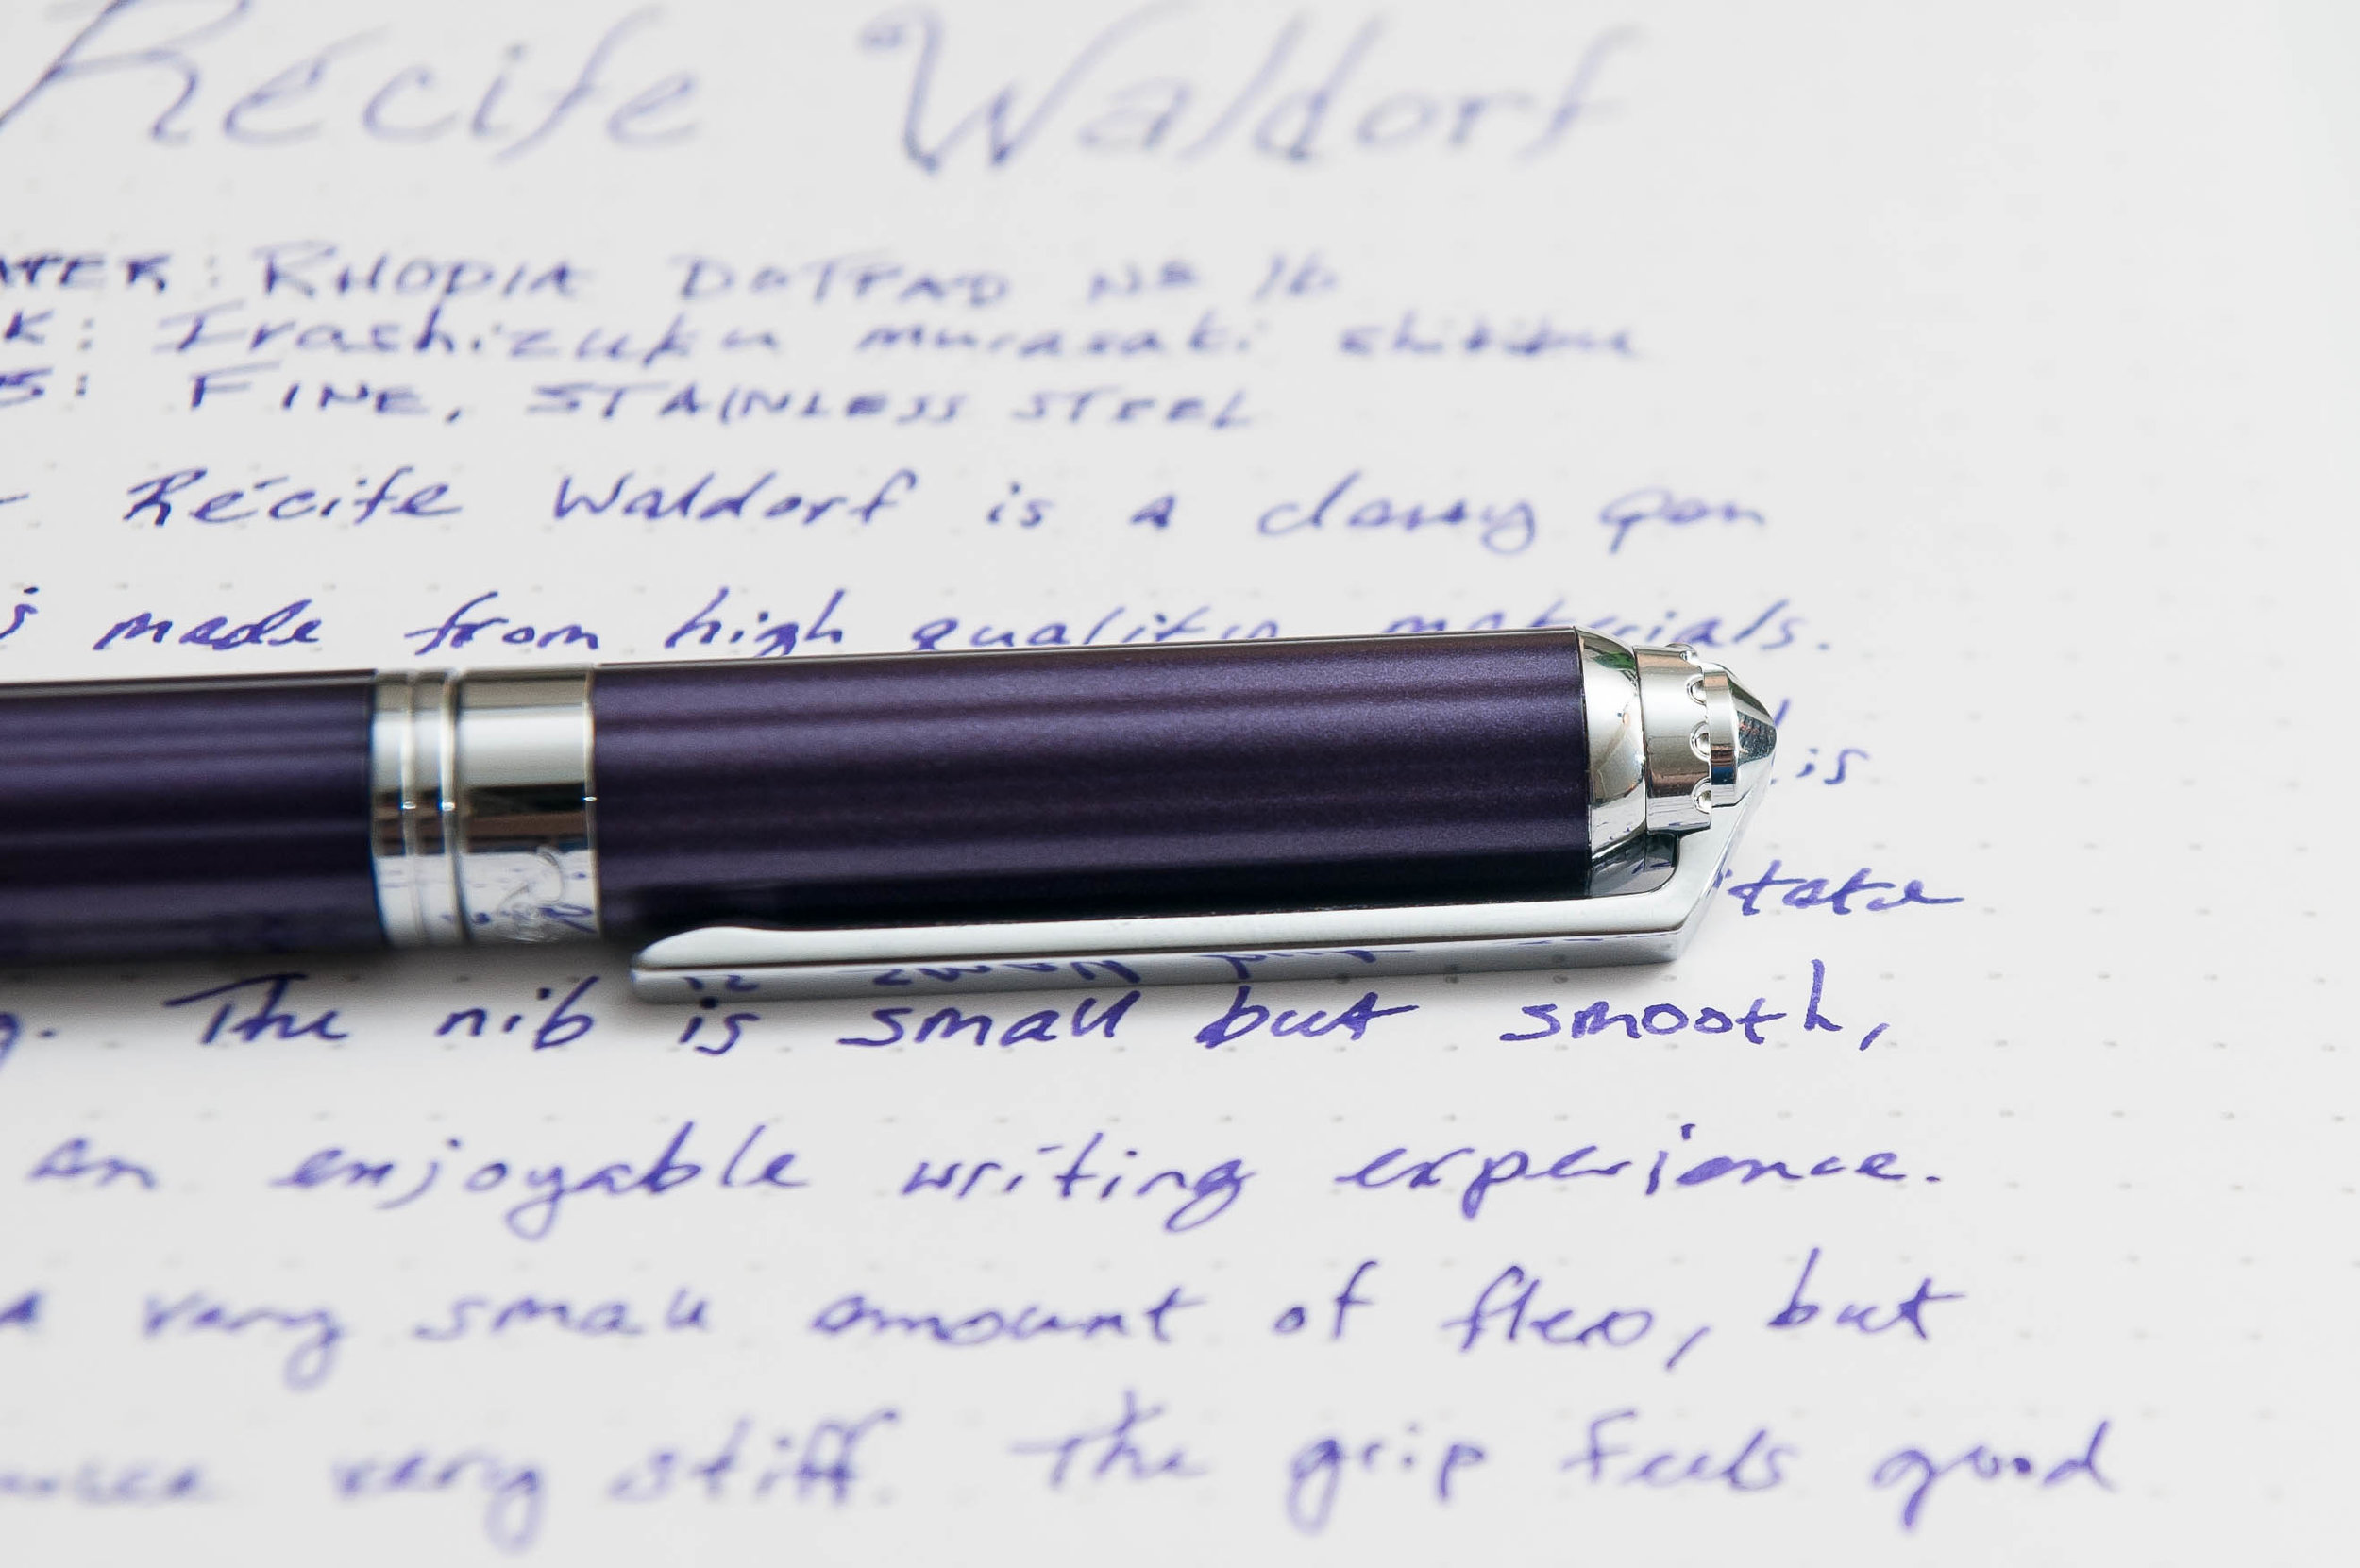 Récife Waldorf
: RHODIA DOTPAD No 16
: Irashizuku murasaki shikibu
: FINE, STAINLESS STEEL
Récife Waldorf is a classy pen
made from high quality materials.
is
The nib is small but smooth,
an enjoyable writing experience.
a very small amount of flex, but
very stiff. The grip feels good